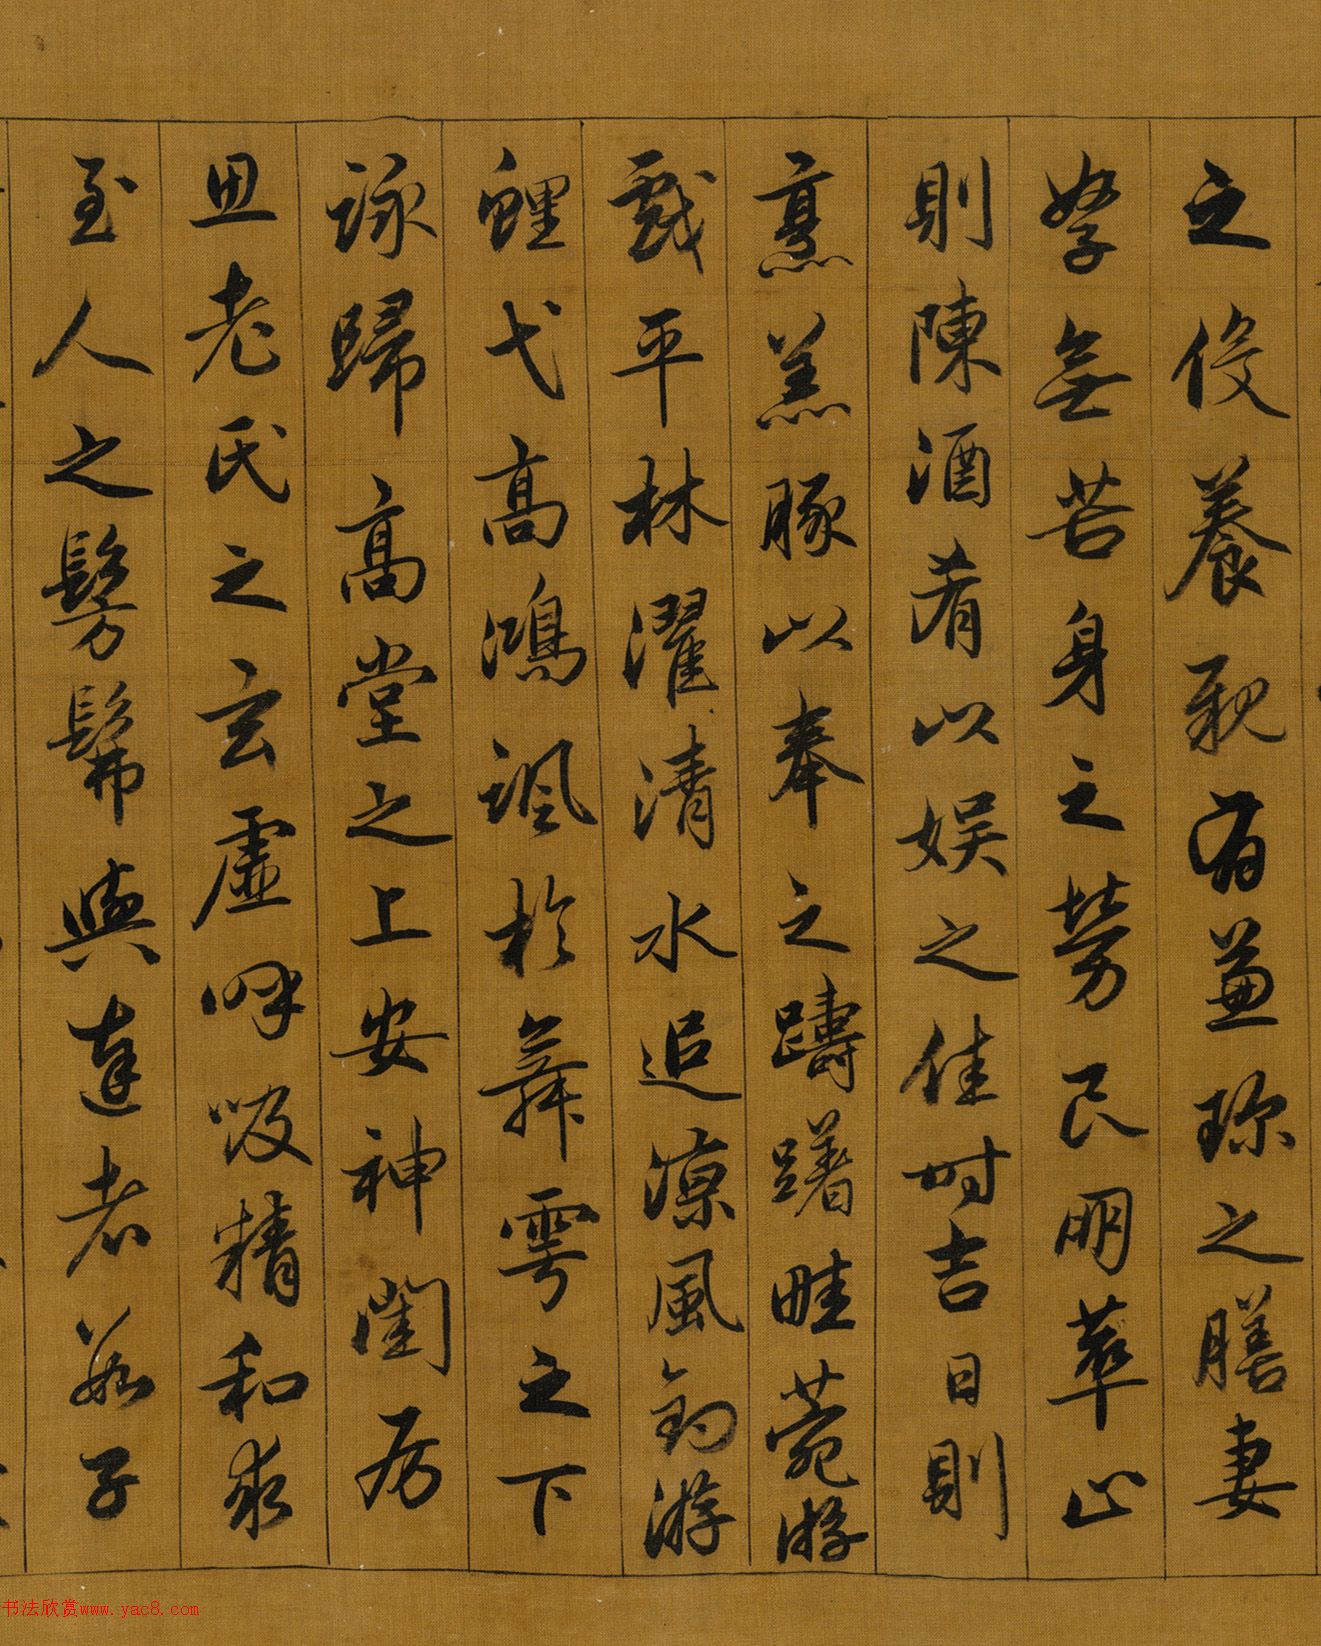 之役養親有兼珍之膳妻
孥無苦身之勞良朋萃止
則陳酒肴以娛之佳時吉日則
烹羔豚以奉之躊躇畦菀游
戲平林濯清水追涼風釣游
鯉弋高鴻諷於舞雩之下
詠歸高堂之上安神閨房
思老氏之玄虛呼吸精和求
至人之髣髴與達者數子
书法欣赏www.yac8.com